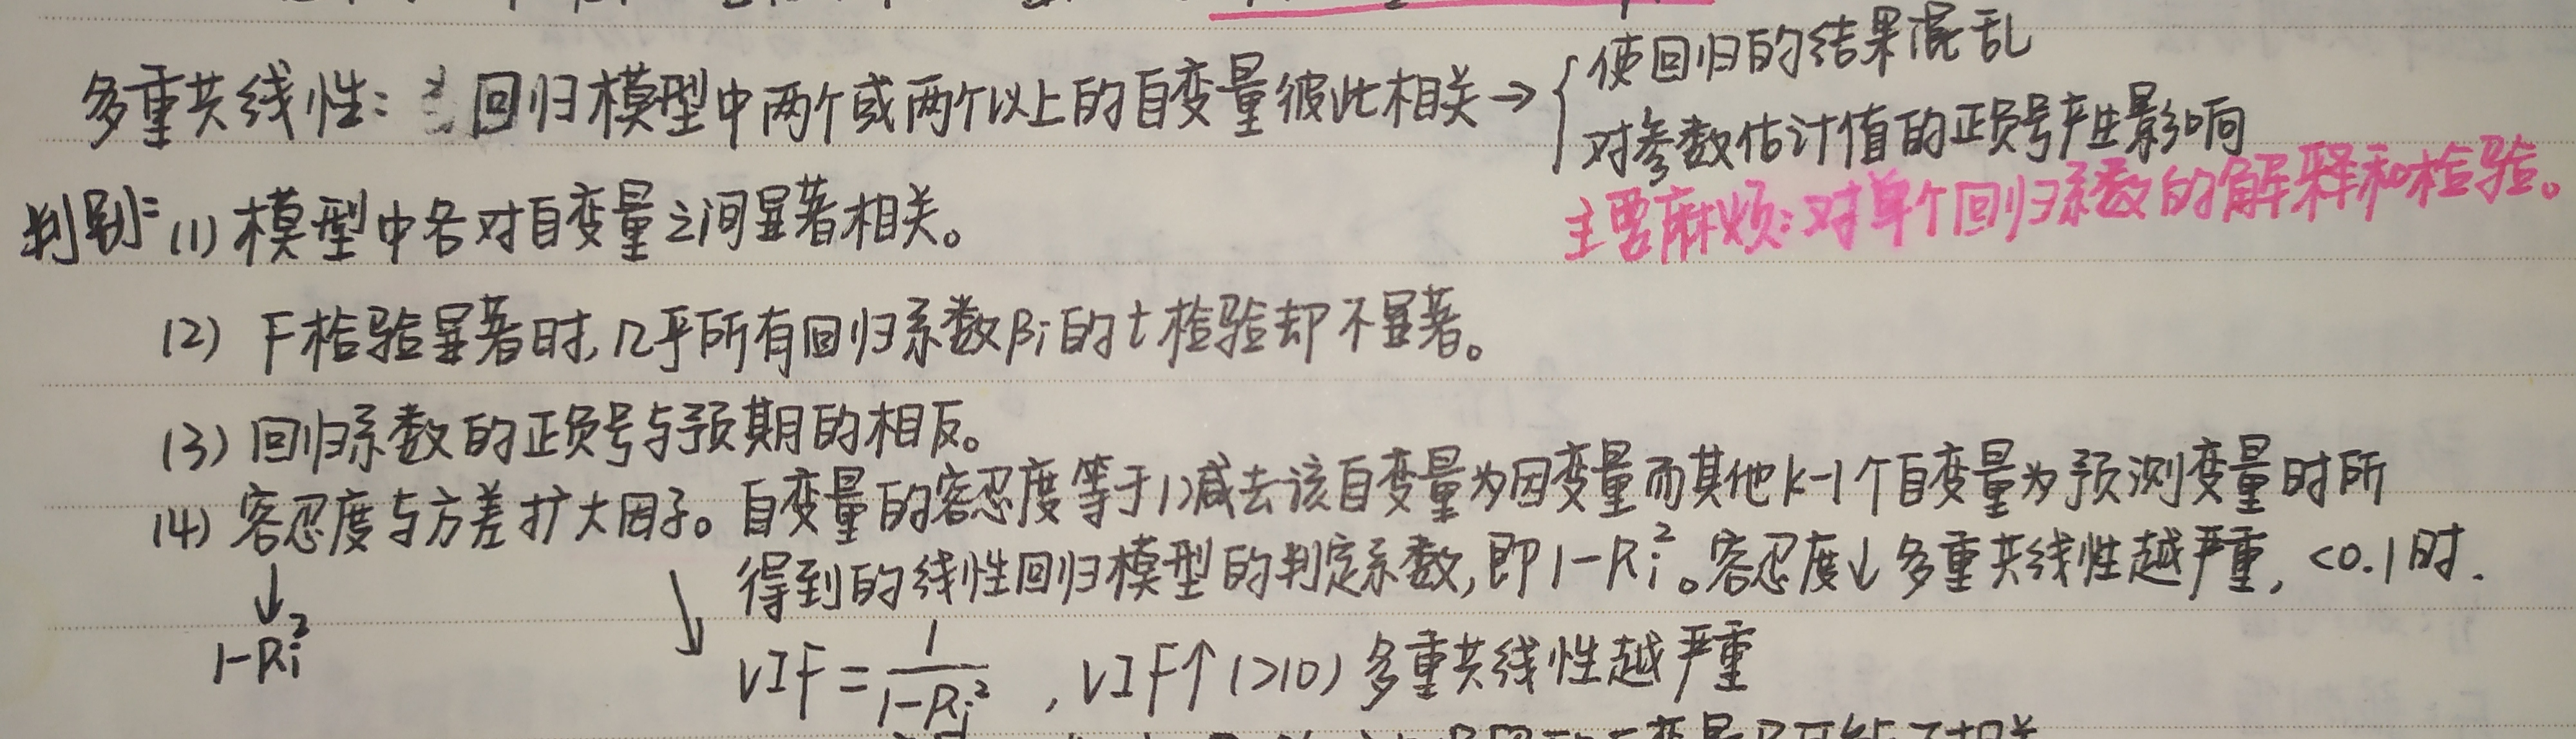 多重共线性：回归模型中两个或两个以上的自变量彼此相关→{使回归的结果混乱
对参数估计值的正负号产生影响
主要麻烦：对单个回归系数的解释和检验。
判别：(1) 模型中各对自变量之间显著相关。
(2) F检验显著时，几乎所有回归系数βi的t检验却不显著。
(3) 回归系数的正负号与预期的相反。
(4) 容忍度与方差扩大因子。自变量的容忍度等于1减去该自变量为因变量而其他k-1个自变量为预测变量时所
得到的线性回归模型的判定系数，即1-Ri²。容忍度↓多重共线性越严重，<0.1时.
↓
1-Ri²
↘ VIF=1/(1-Ri²)，VIF↑(>10) 多重共线性越严重